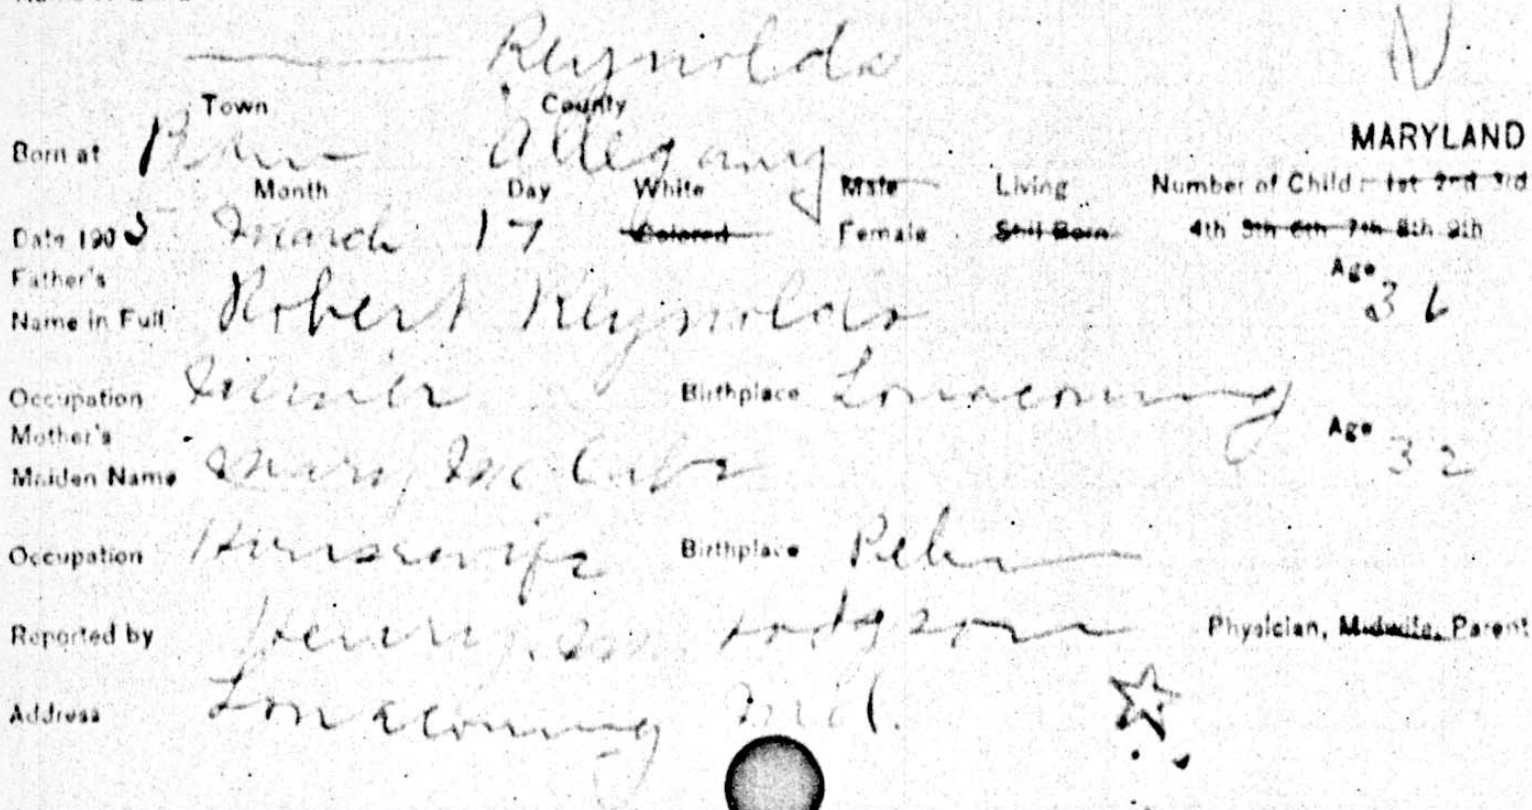 Reynolds N
Town County
Born at Allegany MARYLAND
Month Day White Male Living Number of Child: 1st 2nd 3rd
Date 1905 March 17 Colored Female Still Born 4th 5th 6th 7th 8th 9th
Father's Age
Name in Full Robert Reynolds 36
Occupation Miner Birthplace Lonaconing
Mother's Age
Maiden Name Mary McCabe 32
Occupation Housewife Birthplace
Reported by Henry Hodgson Physician, Midwife, Parent
Address Lonaconing Md.